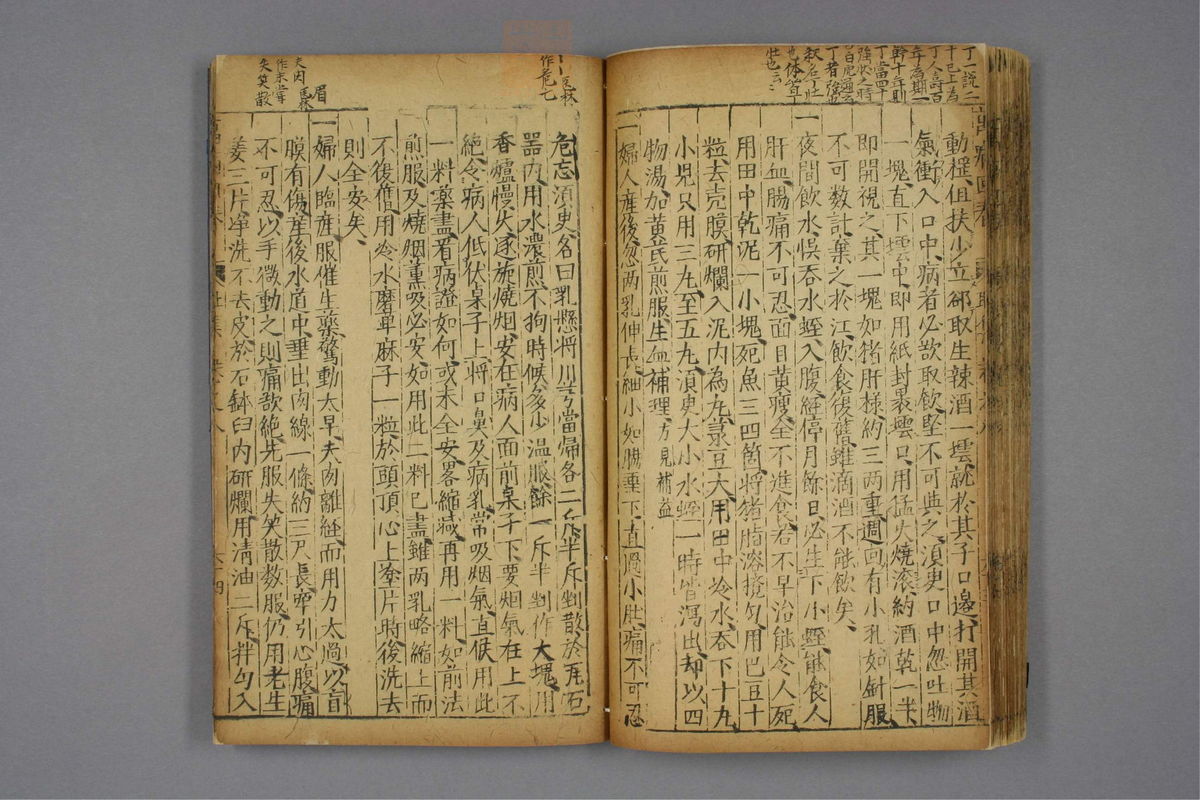 動橙俎扶少立郤取生辣酒一壜就於其子口邊打開其酒
氣衝入口中病者必欲取飲堅不可與之湏㬰口中忽吐物
一塊直下壜中即用紙封裹壜口用猛火燒滚約酒乾一半
即開視之其一塊如猪肝様約三两重週回有小孔如針眼
不可数計棄之於江飲食復舊雖滴酒不能飲矣
一夜間飲水吳吞水蛭入腹經停月餘日必生下小蛭能食人
肝血腸痛不可忍面目黄瘦全不進食若不早治能令人死
用田中乾泥一小塊死魚三四箇将猪脂溶攪匀用巴豆十
粒去壳膜研爛入泥内為丸菉豆大用田中冷水吞下十丸
小児只用三丸至五丸湏㬰大小水蛭一時皆瀉出却以四
物湯加黄芪煎服生血補理方見補益
一婦人産後忽两乳伸長細小如腸垂下直過小肚痛不可忍
危忘湏㬰名曰乳懸将川芎當帰各二斤半斤剉散於瓦石
噐内用水濃煎不拘時候多少温服餘一斤半剉作大塊用
香爐慢火逐旋燒烟安在病人面前桌子下要烟氣在上不
絶令病人低伏桌子上将口鼻及病乳常吸烟氣直候用此
一料藥盡看病證如何或未全安畧縮减再用一料如前法
煎服及燒烟薫吸必安如用此二料已盡雖两乳略縮上而
不復舊用冷水磨萆麻子一粒於頭頂心上塗片時後洗去
則全安矣
一婦人臨産服催生藥驚動太早夫肉離経而用力太過以盲
膜有傷産後水道中垂出肉線一條約三尺長牽引心腹痛
不可忍以手微動之則痛欲絶先服失笑散数服仍用老生
姜三片浄洗不去皮於石鉢臼内研爛用清油二斤拌匀入